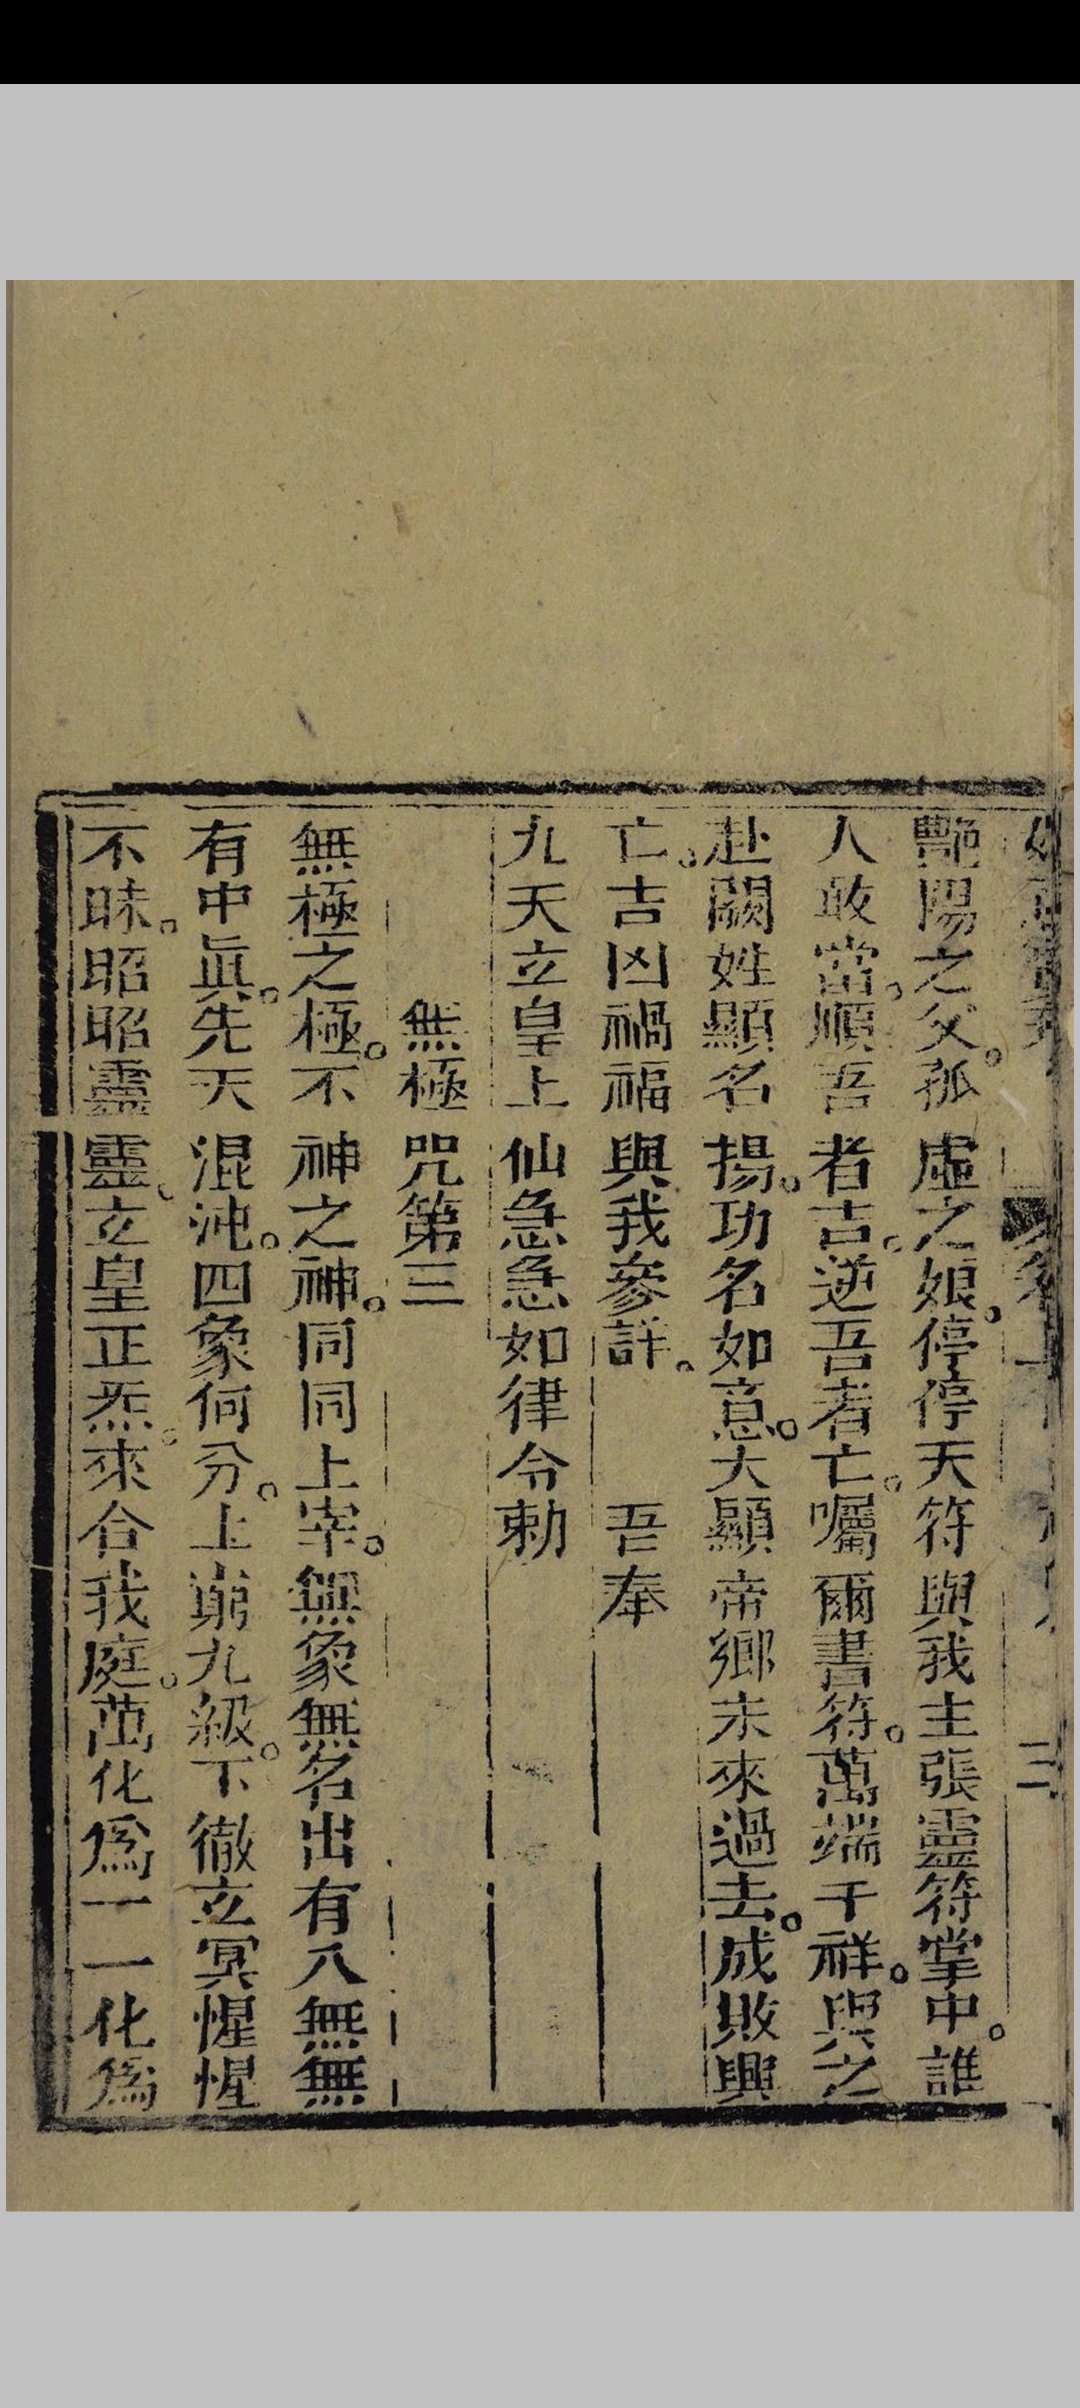 艷陽之父。孤虛之娘。停停天符與我主張靈符掌中。誰
人敢當。順吾者吉。逆吾者亡。囑爾書符。萬端千祥。與之
赴闕姓顯名揚。功名如意。大顯帝鄉未來過去。成敗興
亡。吉凶禍福與我參詳。吾奉
九天立皇上仙急急如律令勅
無極咒第三
無極之極。不神之神。同同上宰。無象無名出有入無無
有中眞。先天混沌。四象何分。上崩九級。下徹立冥惺惺
不昧。昭昭靈靈。立皇正炁。來合我庭。萬化爲一一化爲
三